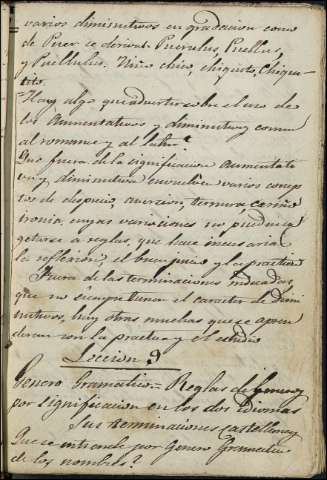 varios diminutivos en gradacion como
de Puer se derivan Puerulus, Puellus,
y Puellulus. Niño chico, chiquito, Chiqui-
tito.
=Hay algo que advertir sobre el uso de
los Aumentativos y diminutivos comun
al romance y al latin?
Que fuera de la significacion aumentati
va y diminutiva envuelven varios concep
tos de desprecio, aversion, ternura cariño
ironia, cuyas variaciones no pudiendo
sujetarse a reglas, que hace necesaria
la reflexion, el buen juicio y la practica
Fuera de las terminaciones indicadas,
que no siempre tienen el caracter de Dimi
nutivos, hay otras muchas que se apren
deran con la practica y el estudio
Leccion 9
Genero Gramatico = Reglas de Generos
por significacion en los dos idiomas
Sus terminaciones castellanas
Que se entiende por Genero Gramatico
de los nombres?